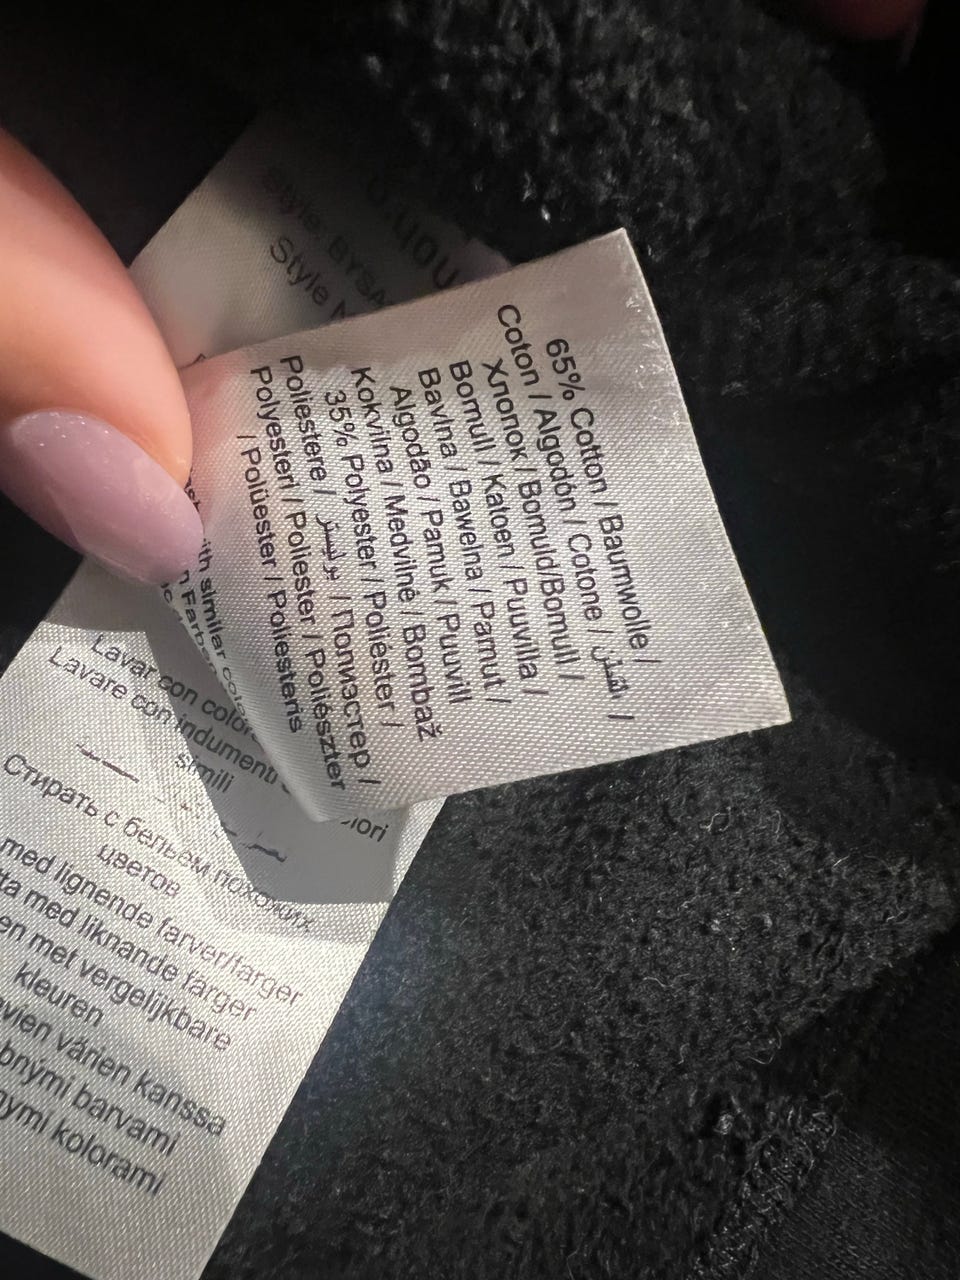 65% Cotton / Baumwolle /
Coton / Algodón / Cotone / قطن /
Хлопок / Bomuld/Bomull /
Bomull / Katoen / Puuvilla /
Bavlna / Bawełna / Pamut /
Algodão / Pamuk / Puuvill
Kokvilna / Medvilnė / Bombaž
35% Polyester / Poliéster /
Poliestere / بوليستر / Полиэстер /
Polyesteri / Poliester / Poliészter
/ Polüester / Poliesteris
Style
Style: BYSA
with similar
Lavar con colores
Lavare con indumenti
colori
simili
Стирать с бельем похожих
цветов
med lignende farver/farger
med liknande färger
met vergelijkbare
kleuren
värien kanssa
barvami
kolorami